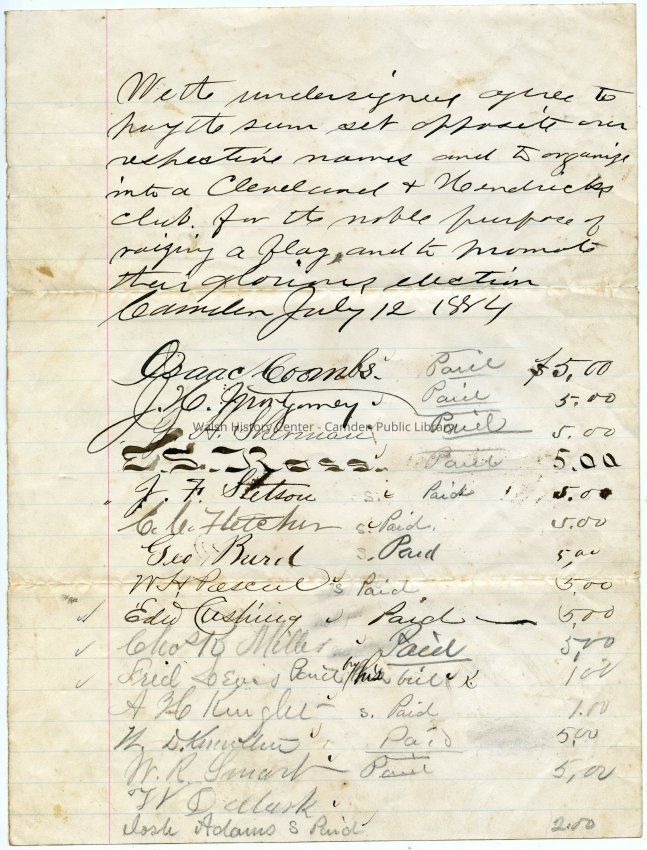 We the undersigned agree to
pay the sum set opposite our
respective names and to organize
into a Cleveland & Hendricks
club. for the noble purpose of
raizing a flag and to promote
their glorious election
Camden July 12 1884
Isaac Coombs. Paid $5,00
J. H. Montgomey Paid 5.00
Walsh History Center - Camden Public Library
Sherman Paid 5.00
Ross. Paid 5.00
J. F. Stetson s. Paid 5.00
C. C. Fletcher s. Paid. 5.00
Geo Burd s. Paid 5,00
W H Pascal s Paid 5,00
Edw Cushing Paid 5,00
Miller Paid 5,00
Fred Lewis Paid by his bill 1,00
A H Knight s. Paid 1.00
D. Knowlton Paid 5,00
W. R. Smart Paid 5,00
Josh Adams S Paid 2.00